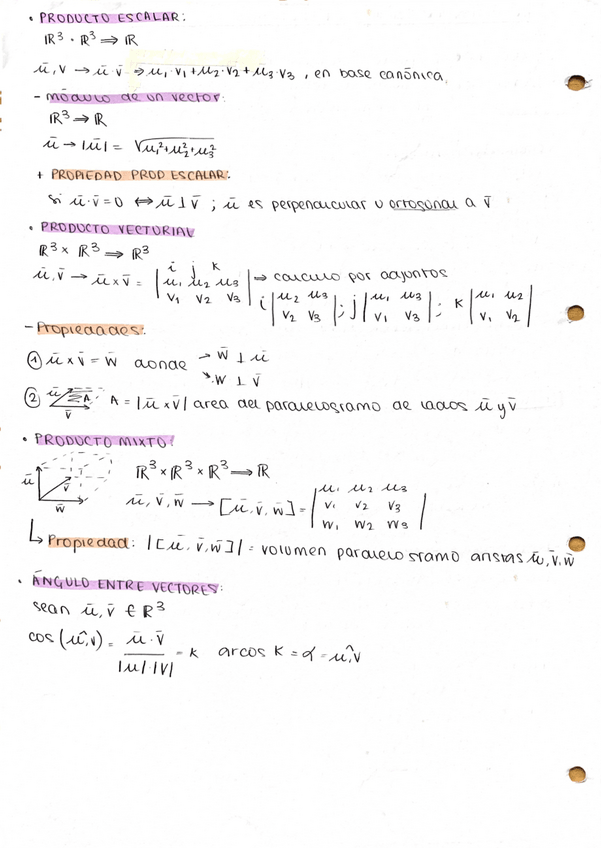 • PRODUCTO ESCALAR:
ℝ³ · ℝ³ ⇒ ℝ
ū, v → ū · v̄ ⇒ u₁·v₁+u₂·v₂+u₃·v₃, en base canónica
- módulo de un vector:
ℝ³ ⇒ ℝ
ū → |ū| = √u₁²+u₂²+u₃²
+ PROPIEDAD PROD ESCALAR:
si ū·v̄=0 ⇔ ū⊥v̄ ; ū es perpendicular u ortogonal a v̄
• PRODUCTO VECTORIAL
ℝ³ × ℝ³ ⇒ ℝ³
i j k
ū, v̄ → ū × v̄ = | u₁ u₂ u₃ | ⇒ calculo por adjuntos
v₁ v₂ v₃
i | u₂ u₃ | ; j | u₁ u₃ | ; k | u₁ u₂ |
v₂ v₃ v₁ v₃ v₁ v₂
- Propiedades:
① ū × v̄ = w̄ donde → w̄ ⊥ ū
↘ w ⊥ v̄
② ū A v̄ A = |ū × v̄| area del paralelogramo de lados ū y v̄
• PRODUCTO MIXTO:
ū v̄ w̄
ℝ³ × ℝ³ × ℝ³ ⇒ ℝ
ū, v̄, w̄ → [ū, v̄, w̄] = | u₁ u₂ u₃ |
v₁ v₂ v₃
w₁ w₂ w₃
↳ Propiedad: |[ū, v̄, w̄]| = volumen paralelogramo aristas ū, v̄, w̄
• ÁNGULO ENTRE VECTORES:
sean ū, v̄ ∈ ℝ³
cos (û,v) = ū · v̄ = k arcos k = α = û,v
|u| · |v|